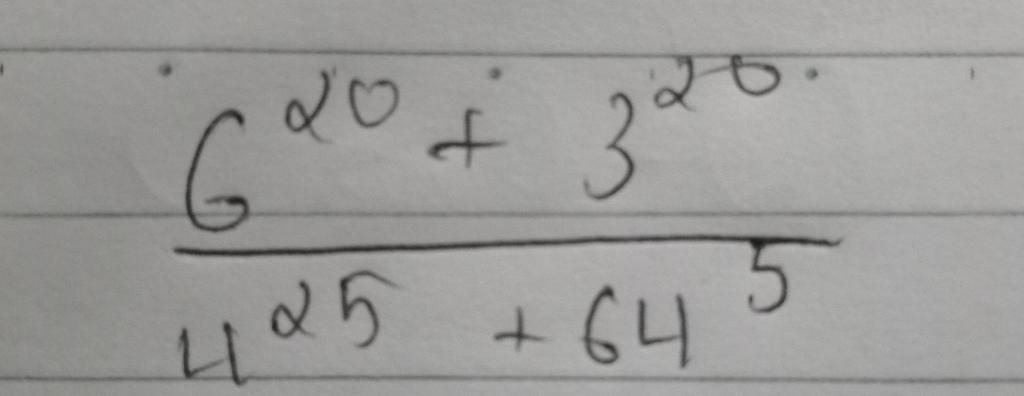 6^20 + 3^20
4^25 + 64^5